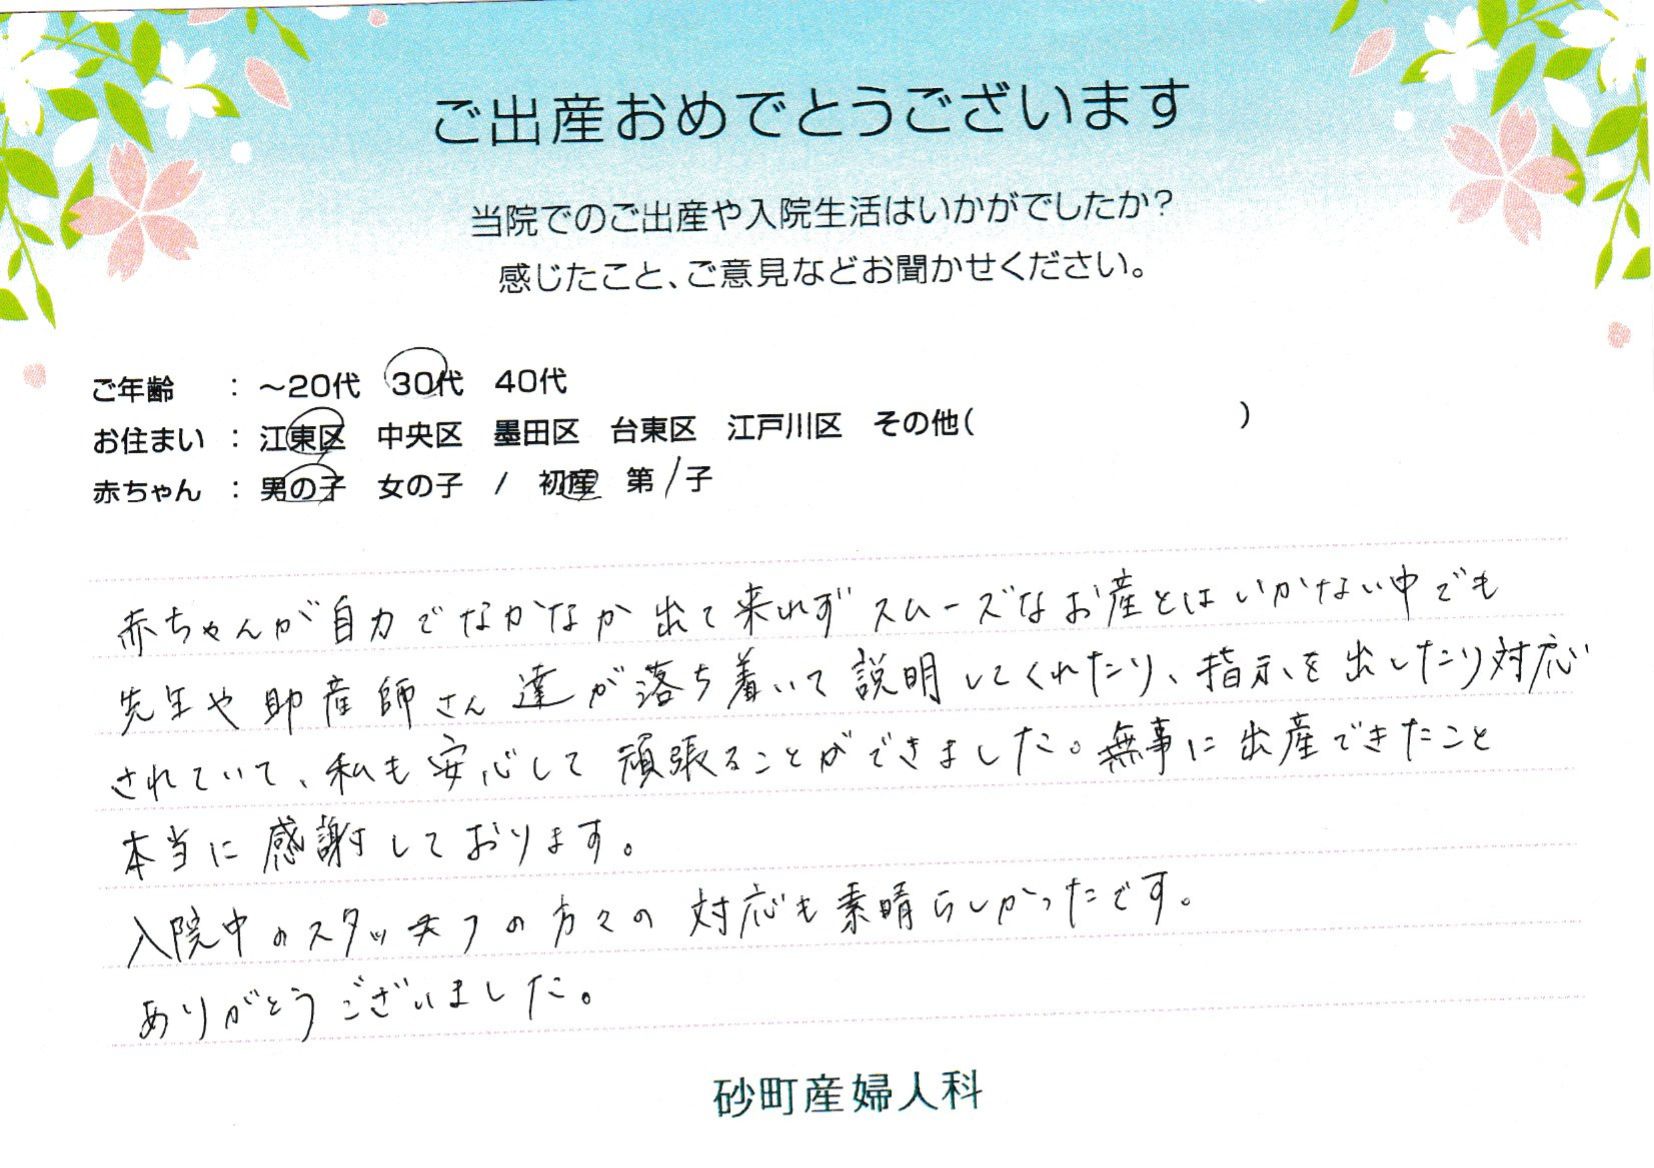 ご出産おめでとうございます
当院でのご出産や入院生活はいかがでしたか?
感じたこと、ご意見などお聞かせください。
ご年齢 : ～20代 30代 40代
お住まい : 江東区 中央区 墨田区 台東区 江戸川区 その他( )
赤ちゃん : 男の子 女の子 / 初産 第1子
赤ちゃんが自力でなかなか出て来れずスムーズなお産とはいかない中でも
先生や助産師さん達が落ち着いて説明してくれたり、指示を出したり対応
されていて、私も安心して頑張ることができました。無事に出産できたこと
本当に感謝しております。
入院中のスタッフの方々の対応も素晴らしかったです。
ありがとうございました。
砂町産婦人科